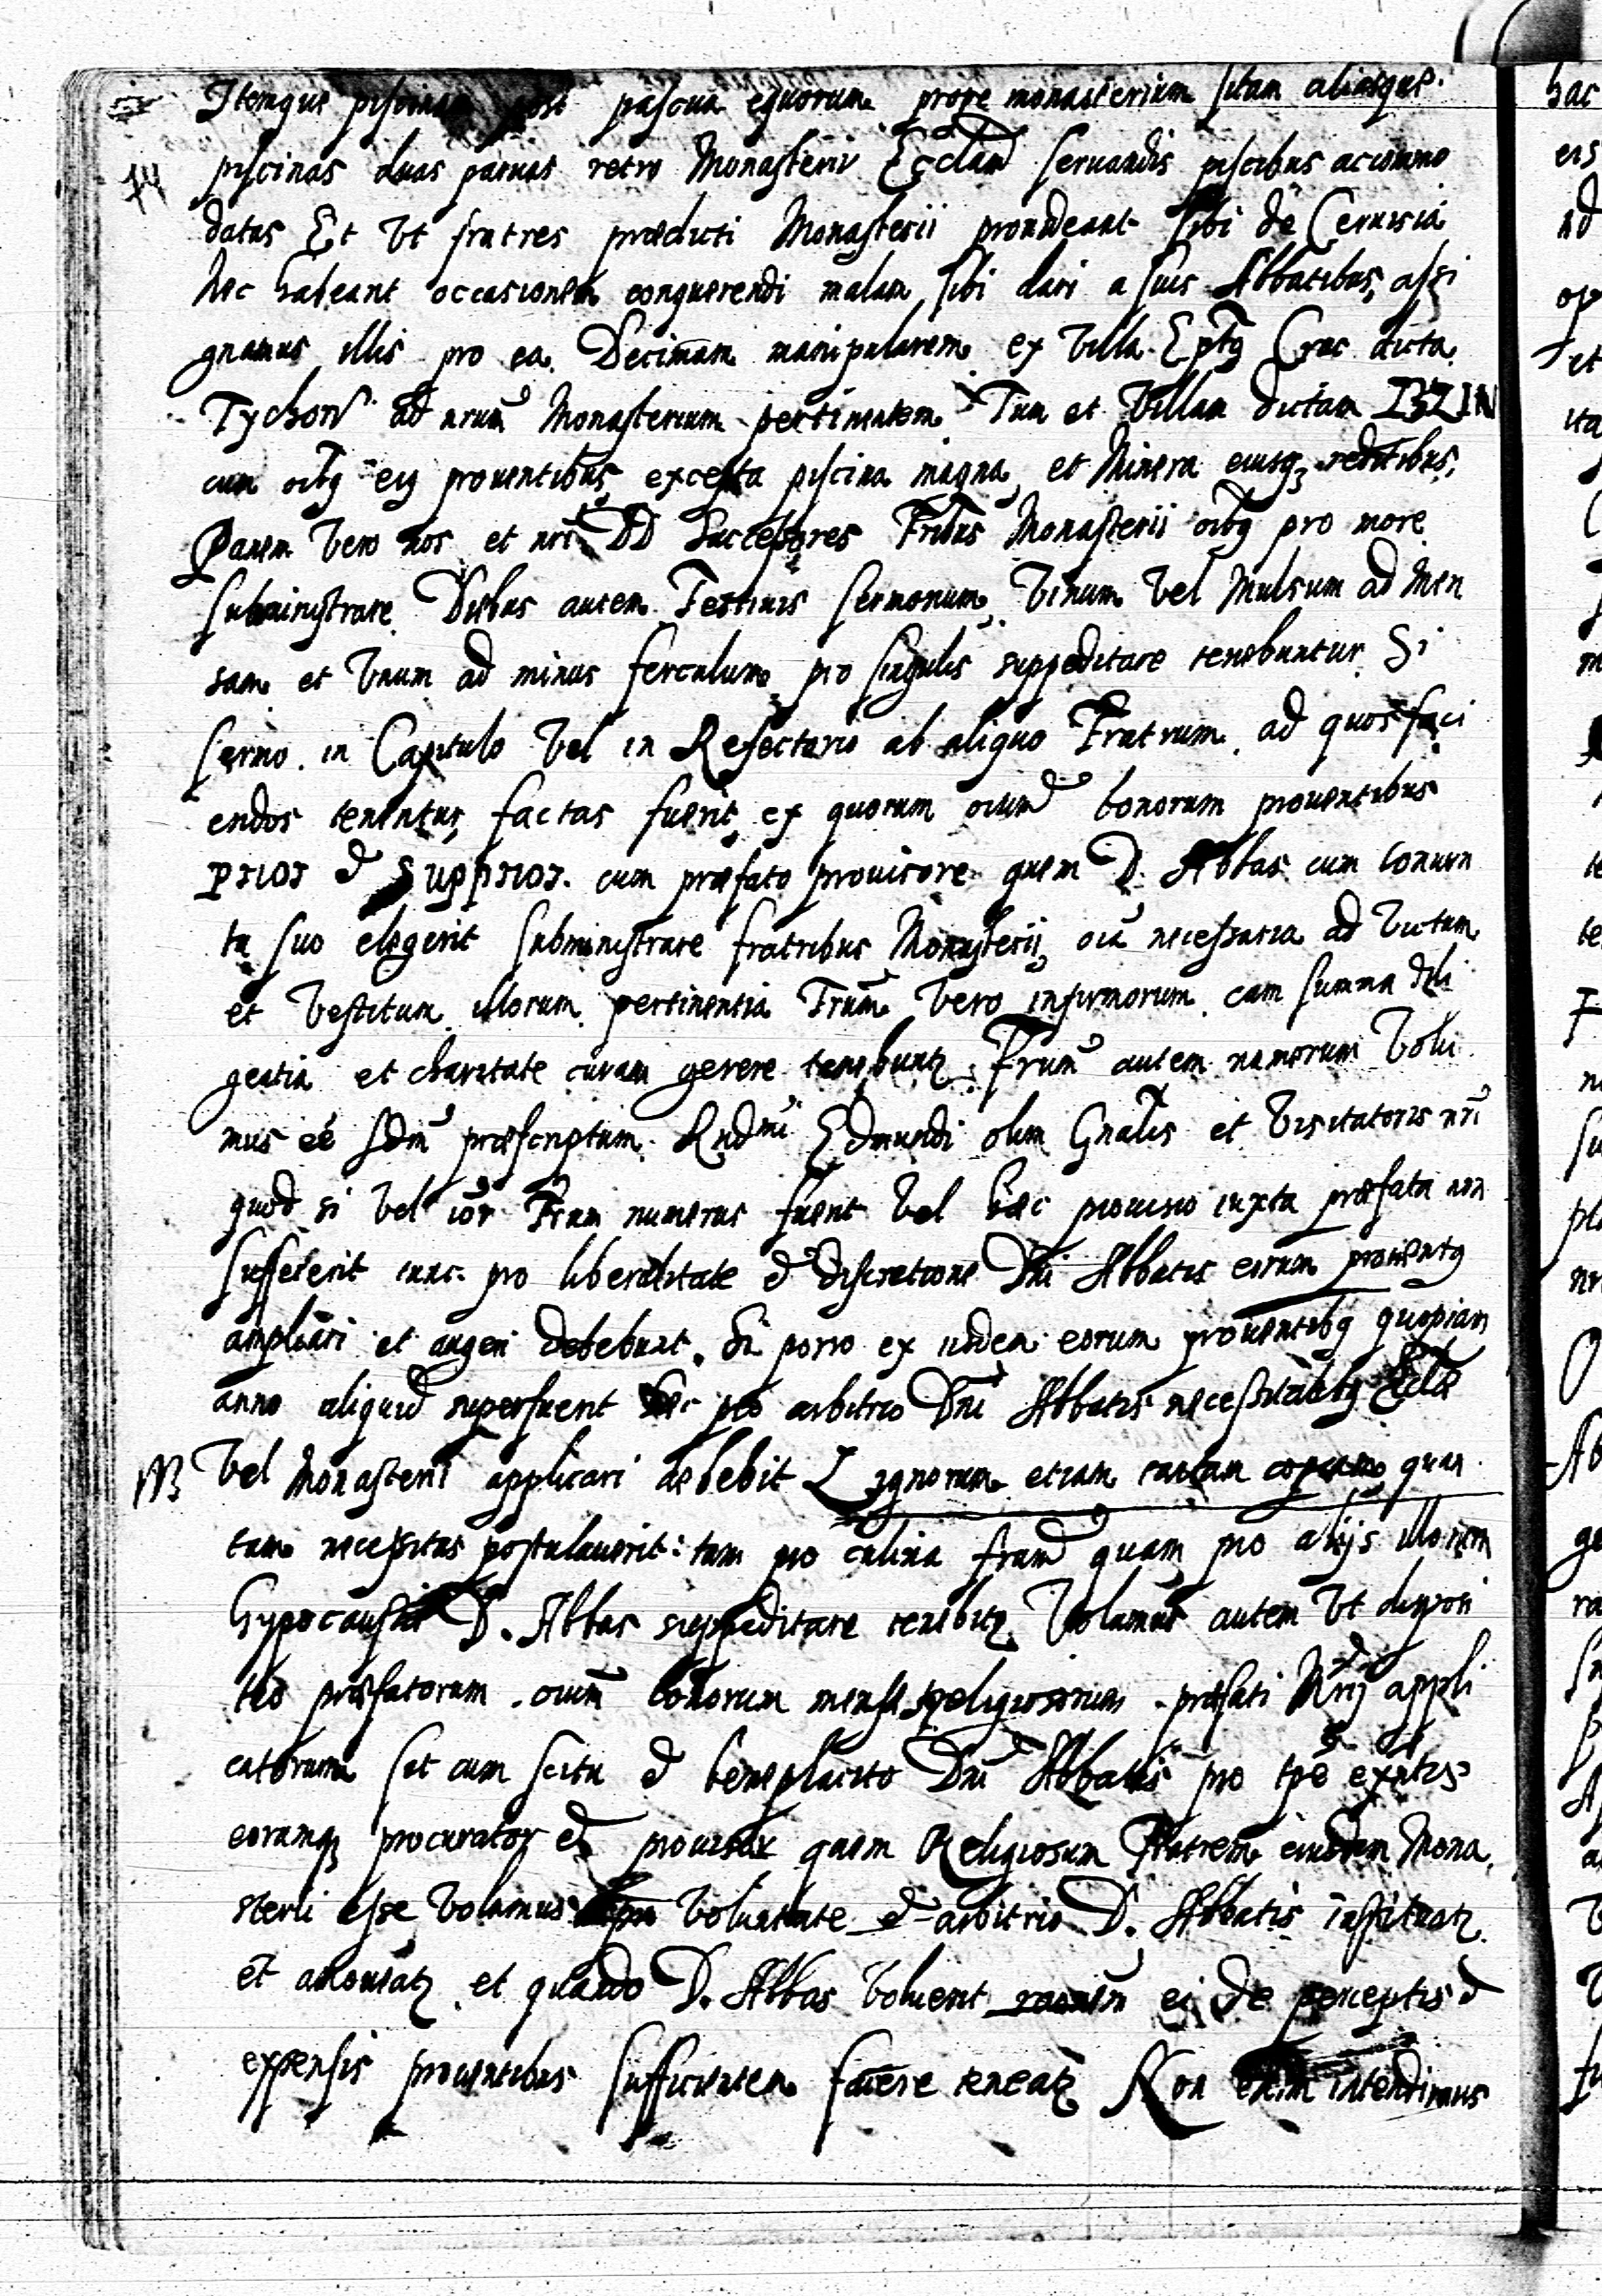 Itemque piscinam post pascua equorum prope monasterium sitam aliasque
14 piscinas duas paruas retro Monasterii Ecclam seruandis piscibus accommo
datas Et Vt fratres prædicti Monasterii prouideant sibi de Ceruisia
Nec habeant occasionem conquerendi malam sibi dari a suis Abbatibus, assi
gnamus illis pro ea Decimam manipularem ex Villa Epatg Crac dicta
Tychow ad nrum Monasterium pertinentem Tum et Villam dictam
cum oibg eig prouentibus excepta piscina magna et Minera eiusq reditibus,
Panem Vero nos et nri DD Successores Fribus Monasterii oibg pro more
subministrare Diebus autem Festiuis sermonum Vinum Vel Mulsum ad Men
sam et Vnum ad minus ferculum pro singulis suppeditare tenebuntur Si
sermo in Capitulo Vel in Refectorio ab aliquo Fratrum ad quos faci
endos tenentur factas fuerit ex quorum oium bonorum prouentibus
prior & Supprior cum præfato prouisore quem D. Abbas cum Conuen
tu suo elegerit subministrare fratribus Monasterii oia necessaria ad Victum
et Vestitum illorum pertinentia Frum Vero infirmorum cum summa dili
gentia et charitate curam gerere tenebuntz Frum autem numerum Volu
mus eē sdm præscriptum Rndmi Edmundi olim Gnalis et Visitatoris nri
quod si Vel ior Frum numerus fuerit Vel hæc prouisio iuxta præfata non
suffecerit tunc pro liberalitate & discretione Dni Abbatis eorum prouentg
ampliari et augeri debebunt. Si porro ex iisdem eorum prouentibg quopiam
anno aliquid superfuerit hoc pro arbitrio Dni Abbatis necessitatibg Eclæ
Vel Monasterii applicari debebit Lignorum etiam tantam copiam quan
tam necessitas postulauerit: tam pro culina frum quam pro alijs illorum
hypocaustis D. Abbas suppeditare tenebitz Volumus autem Vt disposi
tio præfatorum oium bonorum mensæ religiosorum præfati Mrij appli
catorum fiat cum scitu & beneplacito Dni Abbatis pro tpē exntis
eorumq procurator & prouisor quem Religiosum Fratrem eiusdem Mona
sterii esse Volumus Voluntate & arbitrio D. Abbatis instituatz
et amoueatz et quando D. Abbas Voluerit raonem ei de perceptis &
expensis prouentibus sufficientem facere teneatz Non enim intendimus